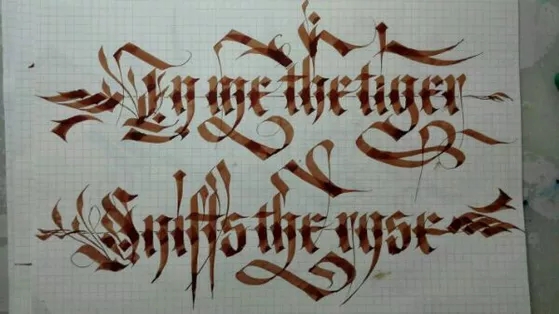 In me the tiger
Sniffs the rose